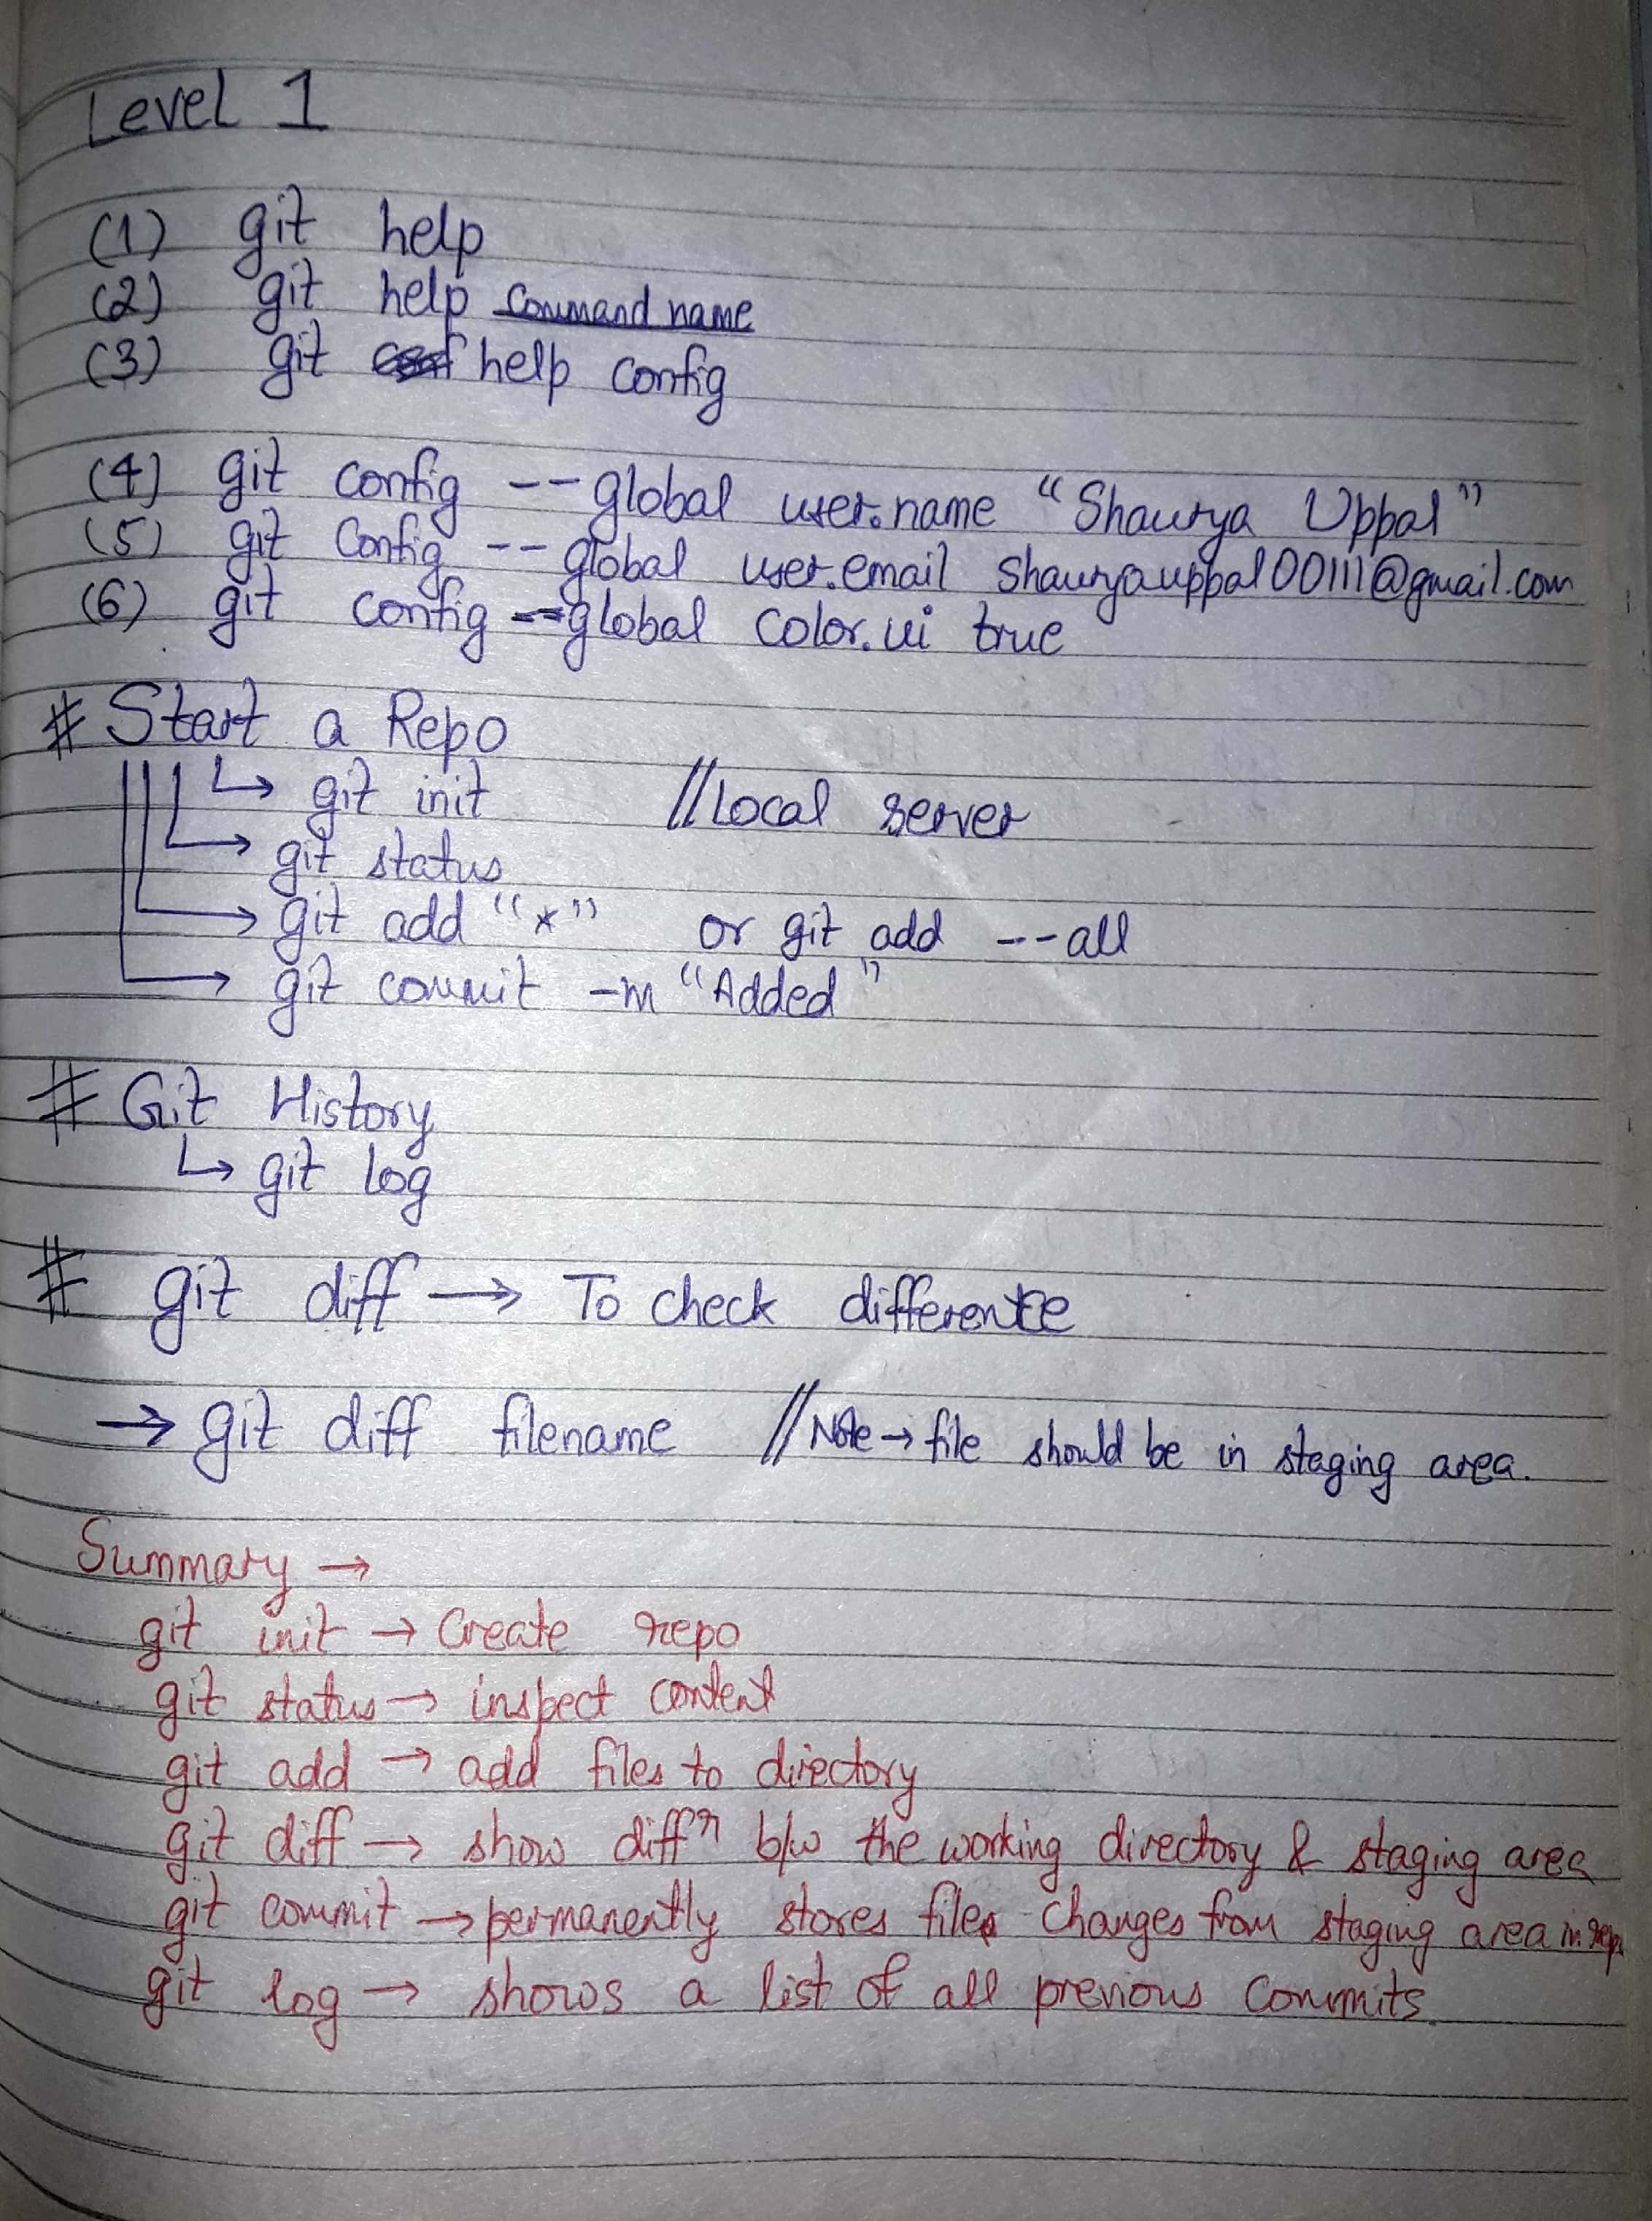 Level 1
(1) git help
(2) git help Command name
(3) git help config
(4) git config --global user.name "Shaurya Uppal"
(5) git Config --global user.email shauryauppal00111@gmail.com
(6) git config --global color.ui true
# Start a Repo
↳ git init //Local server
↳ git status
↳ git add "*" or git add --all
↳ git commit -m "Added"
# Git History
↳ git log
# git diff → To check difference
→ git diff filename //Note → file should be in staging area.
Summary →
git init → Create repo
git status → inspect content
git add → add files to directory
git diff → show diffⁿ b/w the working directory & staging area
git commit → permanently stores files changes from staging area in repo
git log → shows a list of all previous Commits.